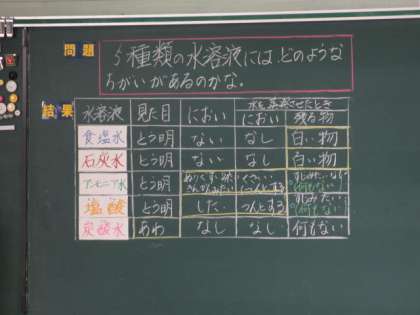 問題
5種類の水溶液には、どのような
ちがいがあるのかな。
結果
水溶液 見た目 におい 水を蒸発させたとき
におい 残る物
食塩水 とう明 ない なし 白い物
石灰水 とう明 ない なし 白い物
アンモニア水 とう明
何もない
塩酸 とう明 した つんとする
何もない
炭酸水 あわ なし なし 何もない